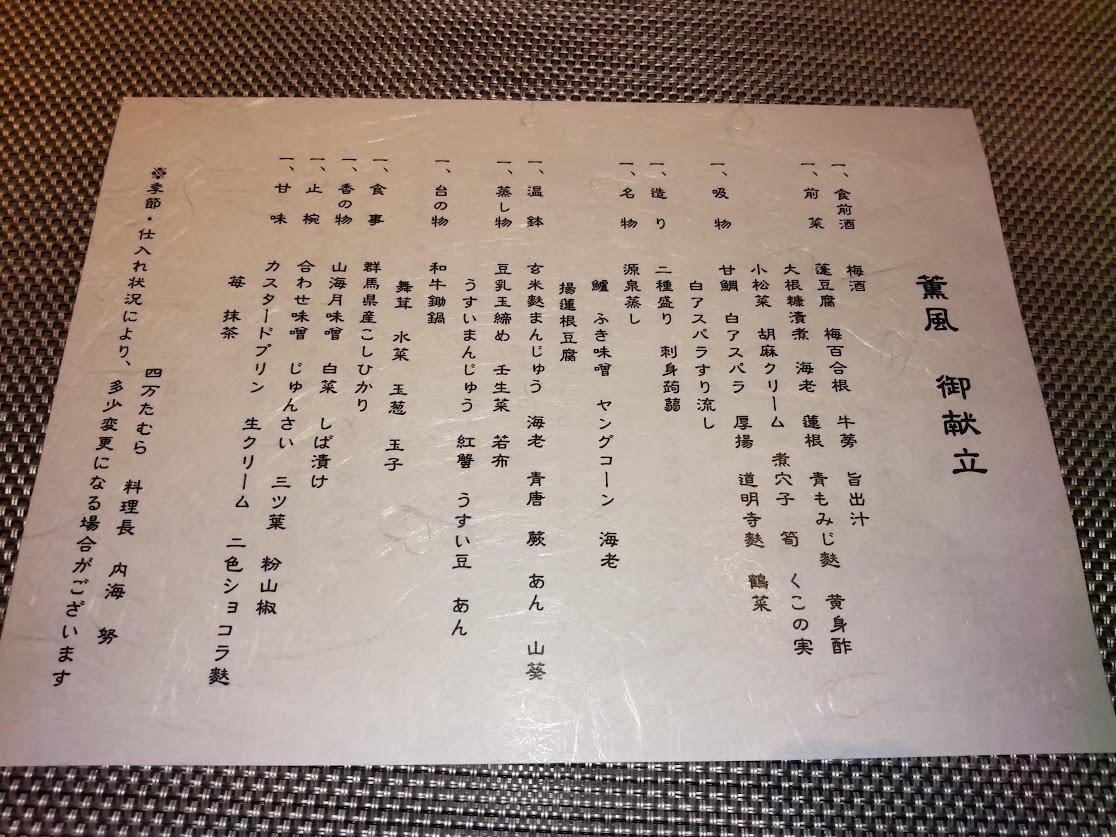 薫風 御献立
一、食前酒 梅酒
一、前菜 蓬豆腐 梅百合根 牛蒡 旨出汁
大根糠漬煮 海老 蓮根 青もみじ麩 黄身酢
小松菜 胡麻クリーム 煮穴子 筍 くこの実
一、吸物 甘鯛 白アスパラ 厚揚 道明寺麩 鶴菜
白アスパラすり流し
一、造り 二種盛り 刺身蒟蒻
一、名物 源泉蒸し
鱸 ふき味噌 ヤングコーン 海老
揚蓮根豆腐
一、温鉢 玄米麩まんじゅう 海老 青唐 蕨 あん 山葵
一、蒸し物 豆乳玉締め 壬生菜 若布
うすいまんじゅう 紅蟹 うすい豆 あん
一、台の物 和牛鋤鍋
舞茸 水菜 玉葱 玉子
一、食事 群馬県産こしひかり
一、香の物 山海月味噌 白菜 しば漬け
一、止椀 合わせ味噌 じゅんさい 三ツ葉 粉山椒
一、甘味 カスタードプリン 生クリーム 二色ショコラ麩
苺 抹茶
四万たむら 料理長 内海 努
※季節・仕入れ状況により、多少変更になる場合がございます